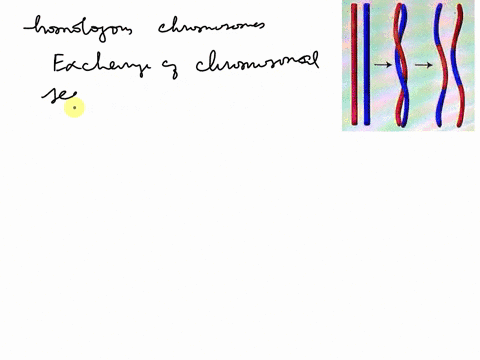 homologous chromosomes
Exchange of chromosomal
se